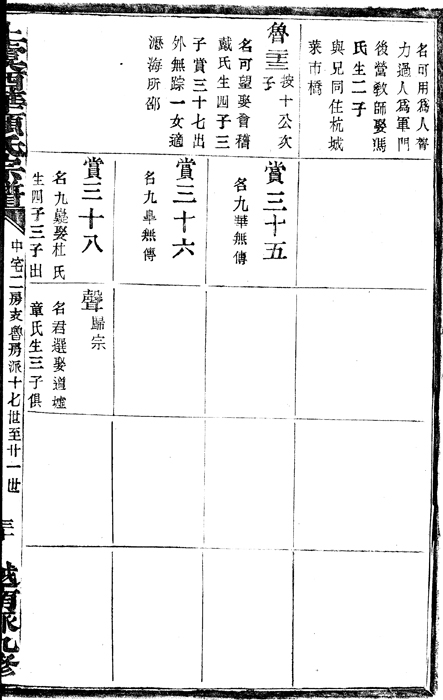 名可用為人膂
力過人為軍門
後營教師娶馮
氏生二子
與兄同住杭城
菜市橋
魯 按十公次子
名可望娶會稽
戴氏生四子三
子賞三十七出
外無踪一女適
瀝海所邵
賞三十五
名九華無傳
賞三十六
名九皋無傳
賞三十八
名九 娶杜氏
生四子三子出
聲 歸宗
名君選娶道墟
章氏生三子俱
上虞西華顧氏宗譜
中宅二房友魯房派十七世至廿一世